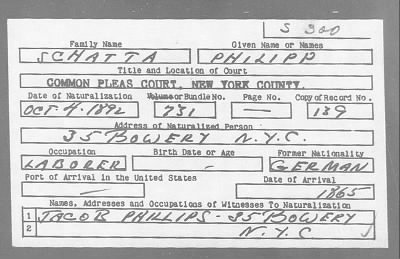 S 300
Family Name Given Name or Names
SCHATTA PHILIPP
Title and Location of Court
COMMON PLEAS COURT, NEW YORK COUNTY.
Date of Naturalization Volume or Bundle No. Page No. Copy of Record No.
OCT 4-1892 731 — 139
Address of Naturalized Person
35 BOWERY N.Y.C.
Occupation Birth Date or Age Former Nationality
LABORER — GERMAN
Port of Arrival in the United States Date of Arrival
— 1865
Names, Addresses and Occupations of Witnesses To Naturalization
1 JACOB PHILLIPS - 35 BOWERY
2 N.Y.C